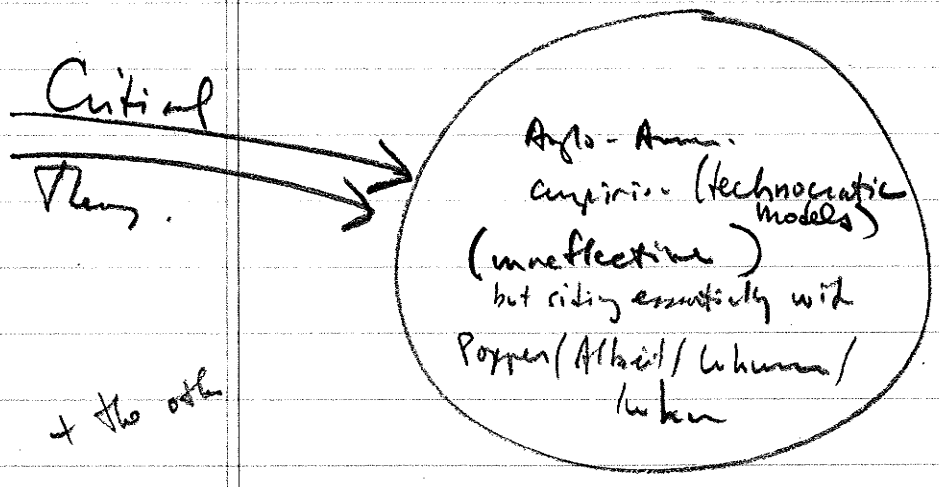 Critical
Theory.
Anglo-Amer.
empiric. (technocratic
models)
(unreflective)
but siding essentially with
Popper/Albert/Luhmann/
+ the other